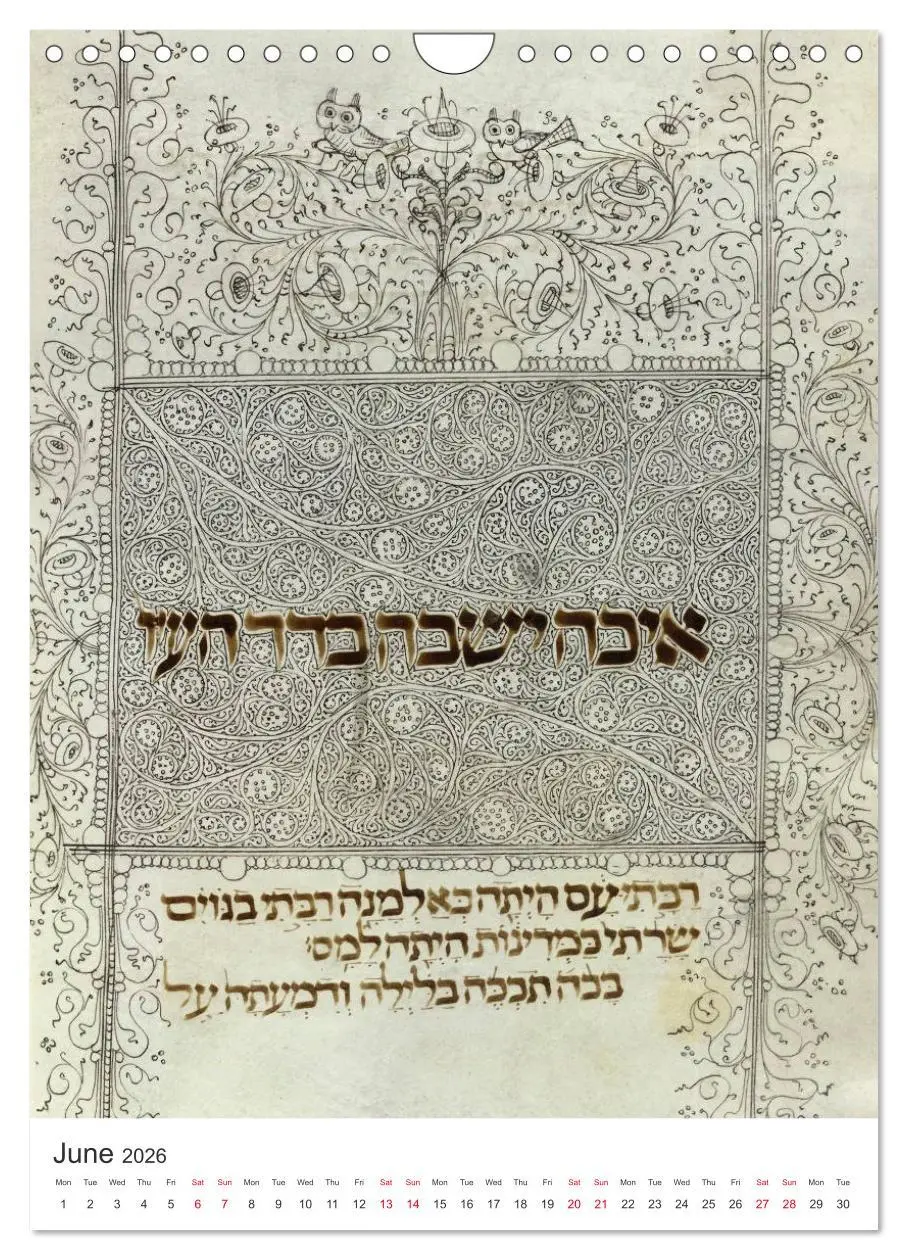 איכה ישבה בדד העיר
רַבָּתִי עָם הָיְתָה כְּאַלְמָנָה רַבָּתִי בַגּוֹיִם
שָׂרָתִי בַּמְּדִינוֹת הָיְתָה לָמַס׃
בָּכֹה תִבְכֶּה בַּלַּיְלָה וְדִמְעָתָהּ עַל
June 2026
Mon Tue Wed Thu Fri Sat Sun Mon Tue Wed Thu Fri Sat Sun Mon Tue Wed Thu Fri Sat Sun Mon Tue Wed Thu Fri Sat Sun Mon Tue
1 2 3 4 5 6 7 8 9 10 11 12 13 14 15 16 17 18 19 20 21 22 23 24 25 26 27 28 29 30